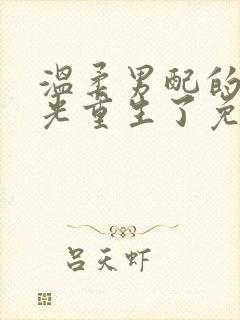 温柔男配的
光重生了免
吕天虾